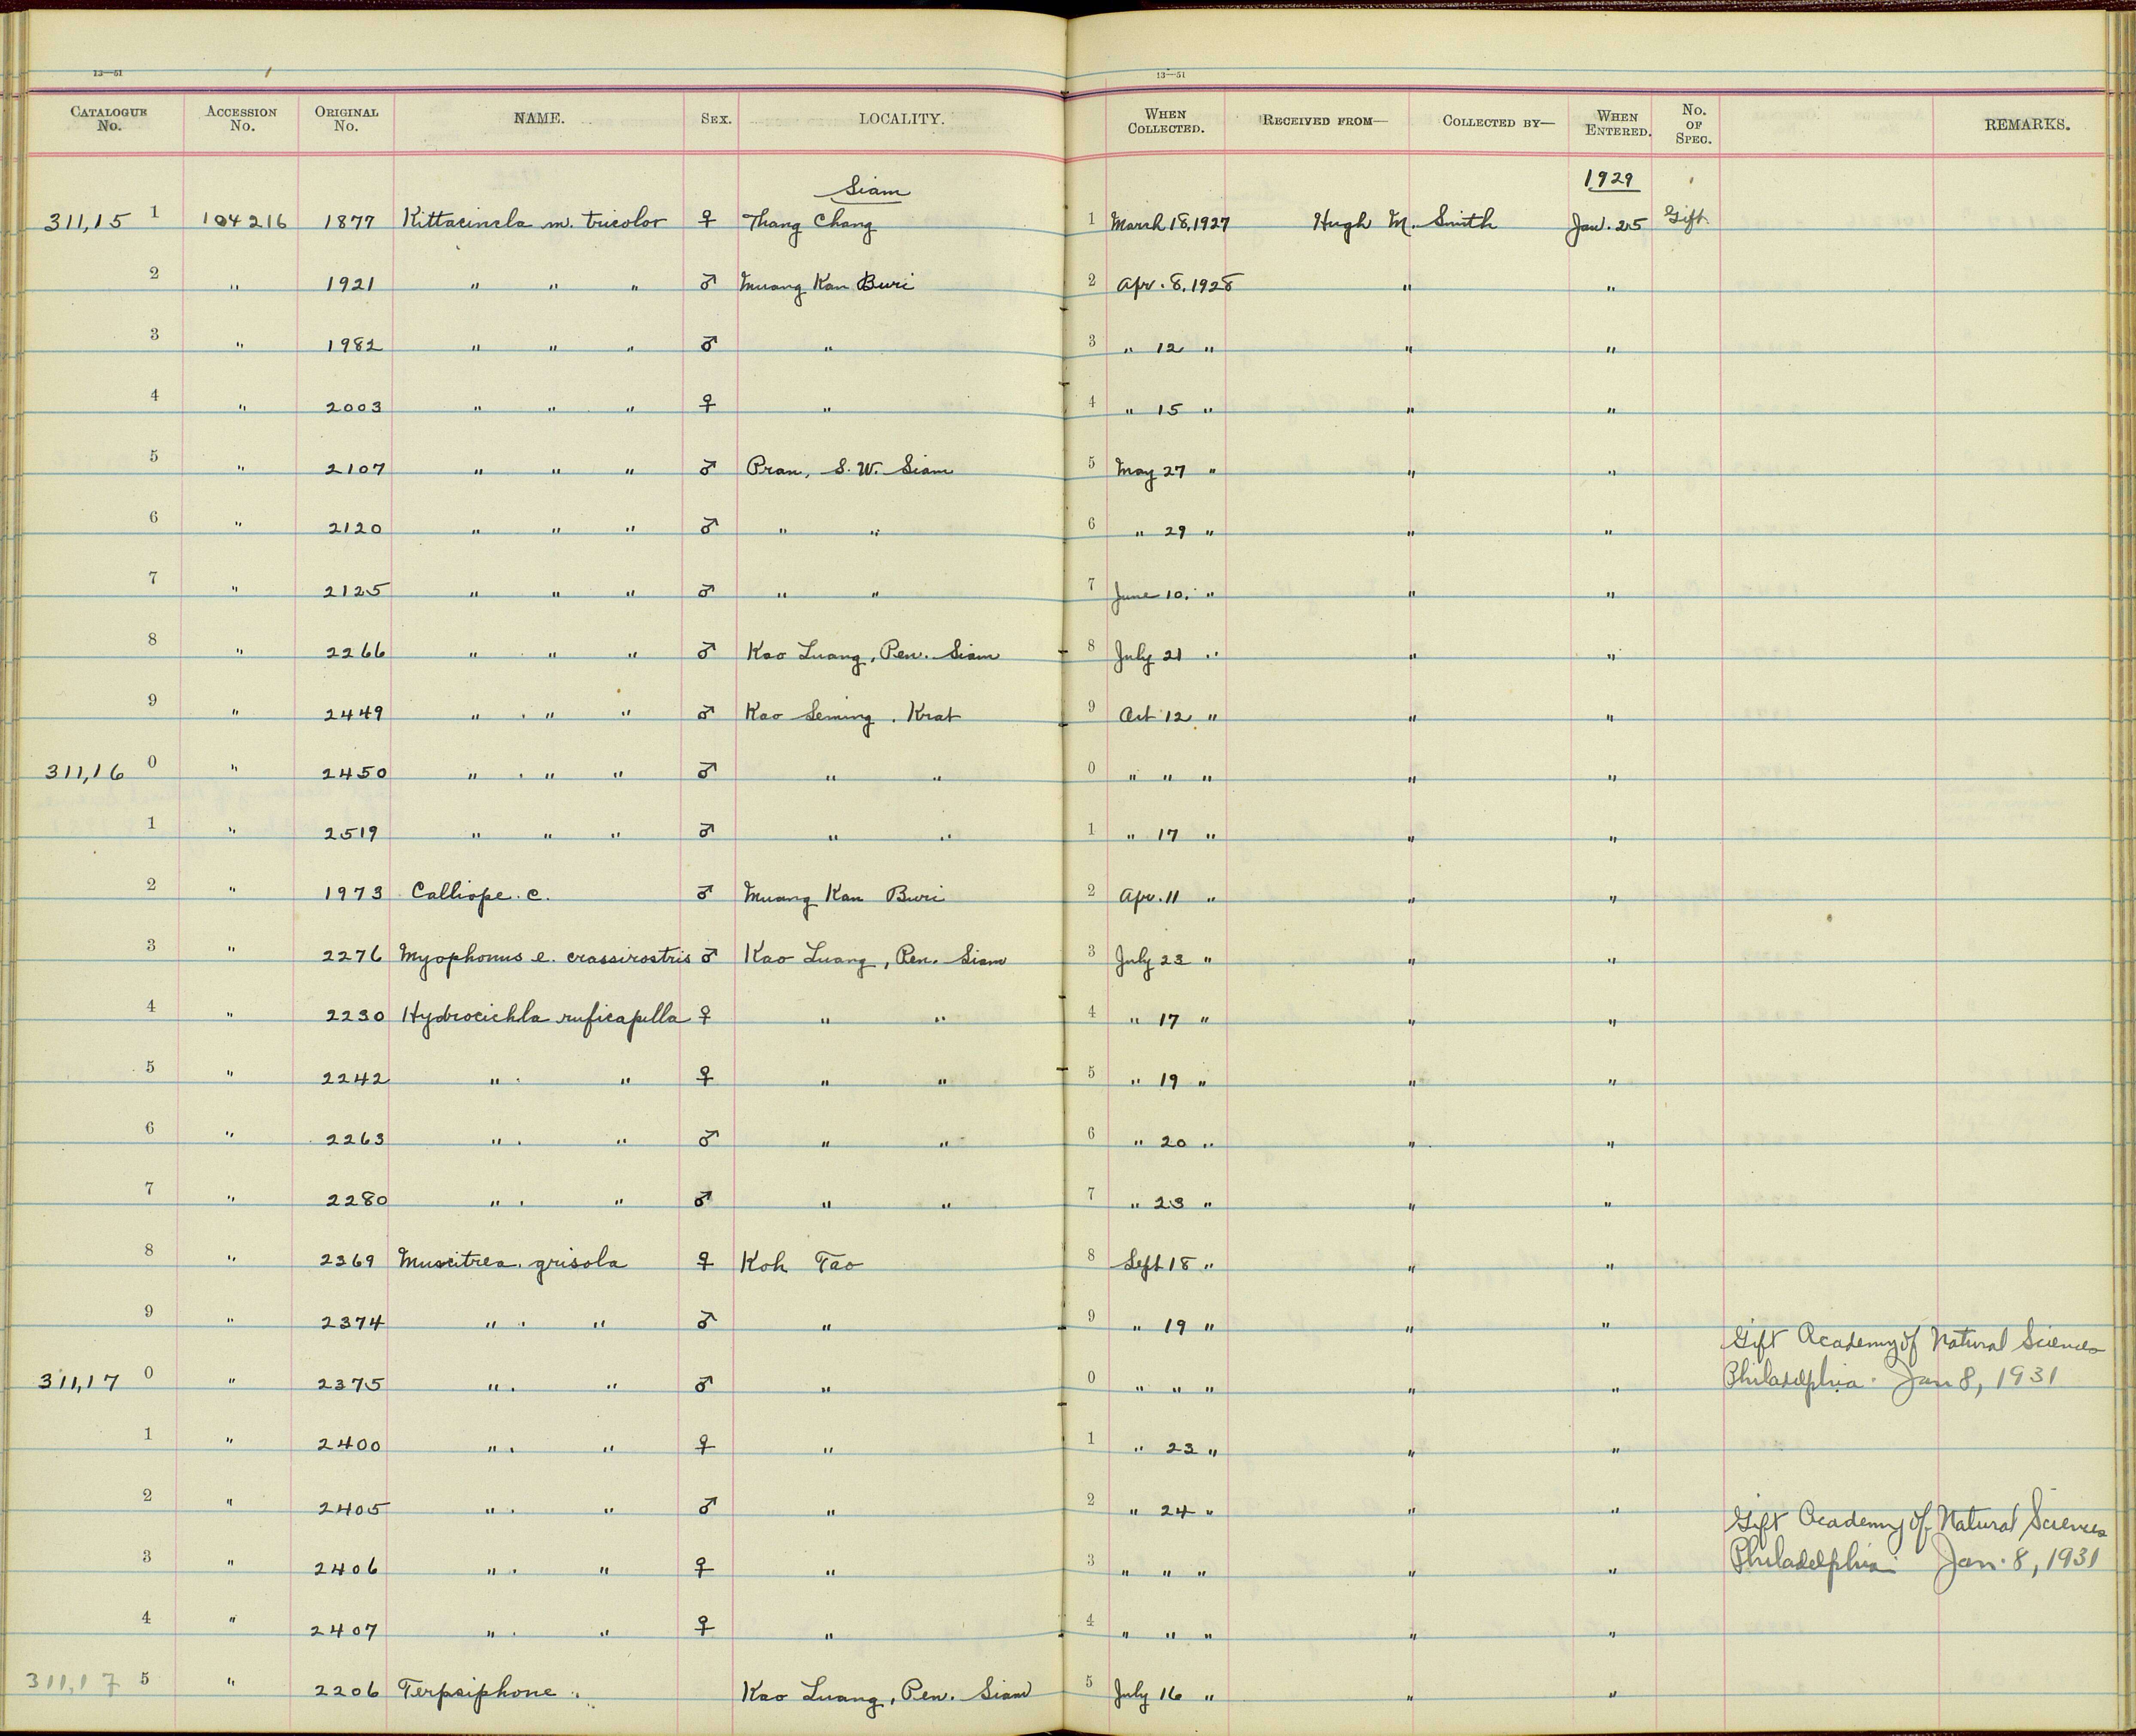 13—51 13—51
CATALOGUE No. ACCESSION No. ORIGINAL No. NAME. SEX. LOCALITY. WHEN COLLECTED. RECEIVED FROM— COLLECTED BY— WHEN ENTERED. No. OF SPEC. REMARKS.
Siam 1929
311,15 1 104216 1877 Kittacincla m. tricolor ♀ Thang Chang 1 March 18, 1927 Hugh M. Smith Jan. 25 Gift.
2 " 1921 " " " ♂ Muang Kan Buri 2 Apr. 8, 1928 " "
3 " 1982 " " " ♂ " 3 " 12 " " "
4 " 2003 " " " ♀ " 4 " 15 " " "
5 " 2107 " " " ♂ Pran, S. W. Siam 5 May 27 " " "
6 " 2120 " " " ♂ " " 6 " 29 " " "
7 " 2125 " " " ♂ " " 7 June 10, " " "
8 " 2266 " " " ♂ Kao Luang, Pen. Siam 8 July 21 " " "
9 " 2449 " " " ♂ Kao Seming, Krat 9 Oct 12 " " "
311,16 0 " 2450 " " " ♂ " " 0 " " " " "
1 " 2519 " " " ♂ " " 1 " 17 " " "
2 " 1973 Calliope. c. ♂ Muang Kan Buri 2 Apr. 11 " " "
3 " 2276 Myophonus e. crassirostris ♂ Kao Luang, Pen. Siam 3 July 23 " " "
4 " 2230 Hydrocichla ruficapilla ♀ " " 4 " 17 " " "
5 " 2242 " " ♀ " " 5 " 19 " " "
6 " 2263 " " ♂ " " 6 " 20 " " "
7 " 2280 " " ♂ " " 7 " 23 " " "
8 " 2369 Muscitrea. grisola ♀ Koh Tao 8 Sept 18 " " "
9 " 2374 " " ♂ " 9 " 19 " " "
Gift Academy of Natural Sciences
311,17 0 " 2375 " " ♂ " 0 " " " " " Philadelphia. Jan 8, 1931
1 " 2400 " " ♀ " 1 " 23 " " "
2 " 2405 " " ♂ " 2 " 24 " " "
Gift Academy of Natural Sciences
3 " 2406 " " ♀ " 3 " " " " " Philadelphia Jan. 8, 1931
4 " 2407 " " ♀ " 4 " " " " "
311,17 5 " 2206 Terpsiphone. Kao Luang, Pen. Siam 5 July 16 " " "